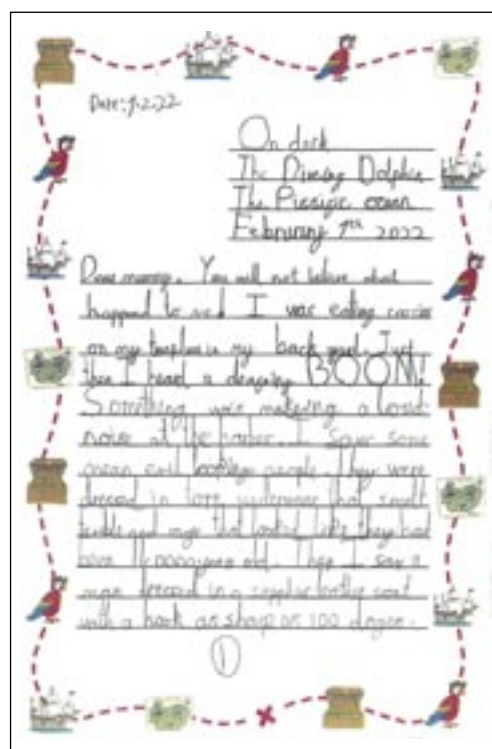 Date: 7.2.22
On deck
The Diving Dolphin
The Pacific ocean
February 7th 2022
Dear mummy, You will not believe what
happend to me! I was eating
on my in my back yard. Just
then I heard a BOOM!
Something was making a loud
noise at the harbor. I some
evil looking people. They were
dressed in torn underwear that smelt
and rags that looked like they had
been years old. Then I saw a
man dressed in a
with a hook as sharp as 100
1